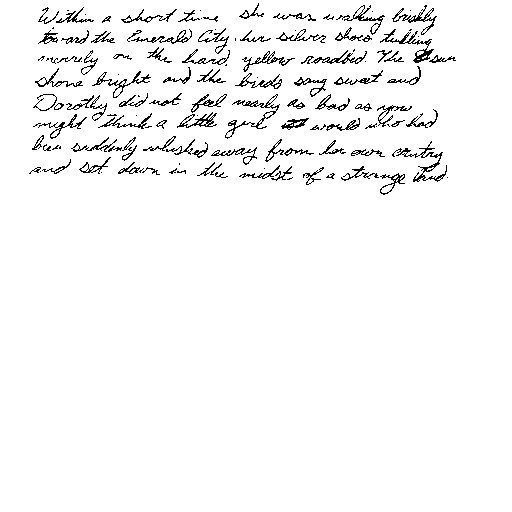 Within a short time she was walking briskly
toward the Emerald City, her silver shoes tinkling
merrily on the hard, yellow roadbed. The sun
shone bright and the birds sang sweet and
Dorothy did not feel nearly as bad as you
might think a little girl would who had
been suddenly whisked away from her own cuntry
and set down in the midst of a strange land.